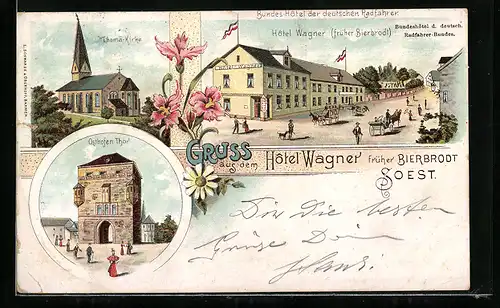 Bundes-Hôtel der deutschen Radfahrer.
Hôtel Wagner (früher Bierbrodt)
Bundeshôtel d. deutsch.
Radfahrer-Bundes.
Thomä-Kirche
HÔTEL WAGNER
Osthofen Thor
Gruss
aus dem Hôtel Wagner früher BIERBRODT
SOEST.
die besten
Grüsse Dein